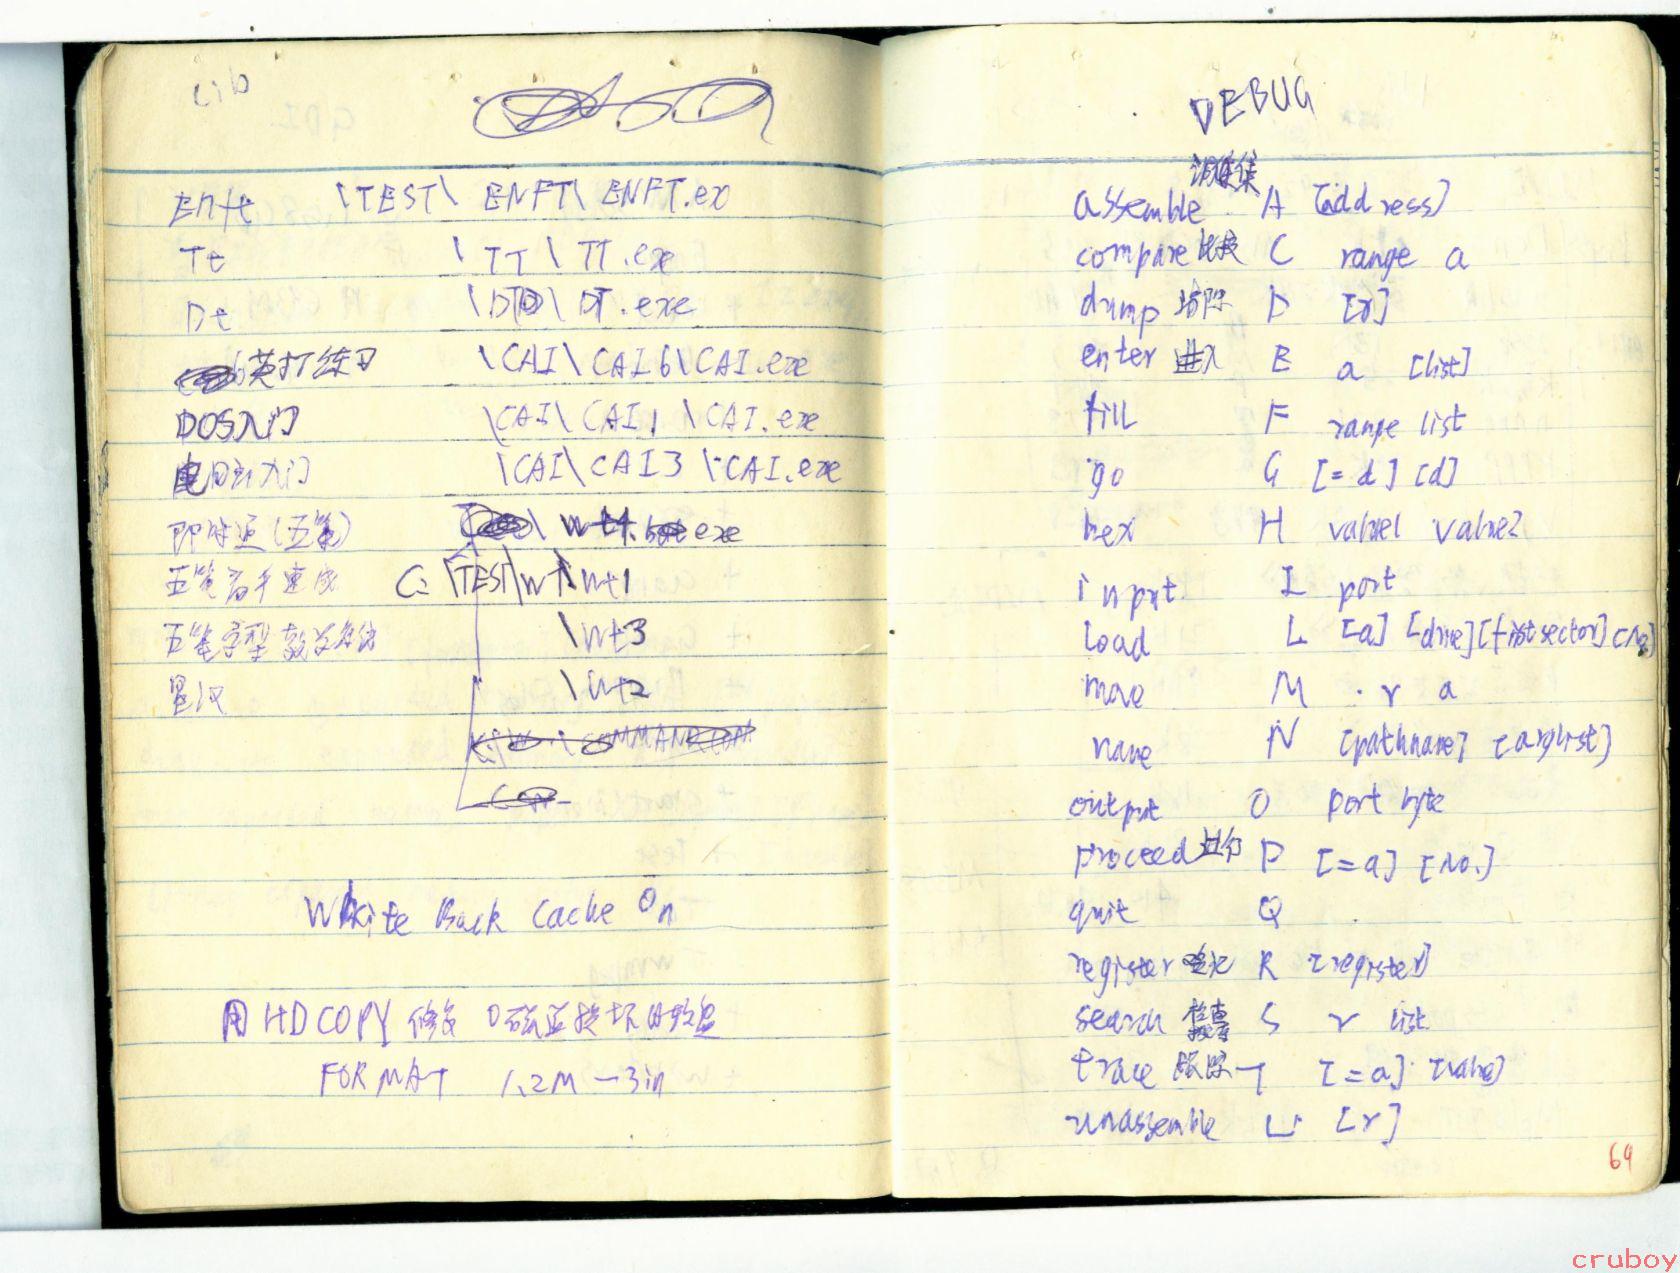 Lib
Enft \TEST\ ENFT\ ENFT.ex
Tt \ TT \ TT.exe
Dt \DT\ DT.exe
英打练习 \CAI\ CAI6\CAI.exe
DOS入门 \CAI\ CAI1 \CAI.exe
电脑入门 \CAI\ CAI3 \CAI.exe
(五笔) exe
五笔高手速成 C:\TEST\Wt\Wt1
五笔字型教学 \Wt3
\Wt2
Write Back Cache On
用HDCOPY修复0磁道损坏的软盘
FORMAT 1.2M 3in
DEBUG
assemble A [address]
compare 比较 C range a
dump D [r]
enter 进入 E a [list]
fill F range list
go G [=d] [d]
hex H value1 value2
input I port
load L [a] [drive] [fistsector] [No]
move M r a
name N [pathname] [arglist]
output O port byte
proceed 进行 P [=a] [No.]
quit Q
register 登记 R [register]
search 检查 S r list
trace 跟踪 T [=a] [value]
unassemble U [r]
64
cruboy